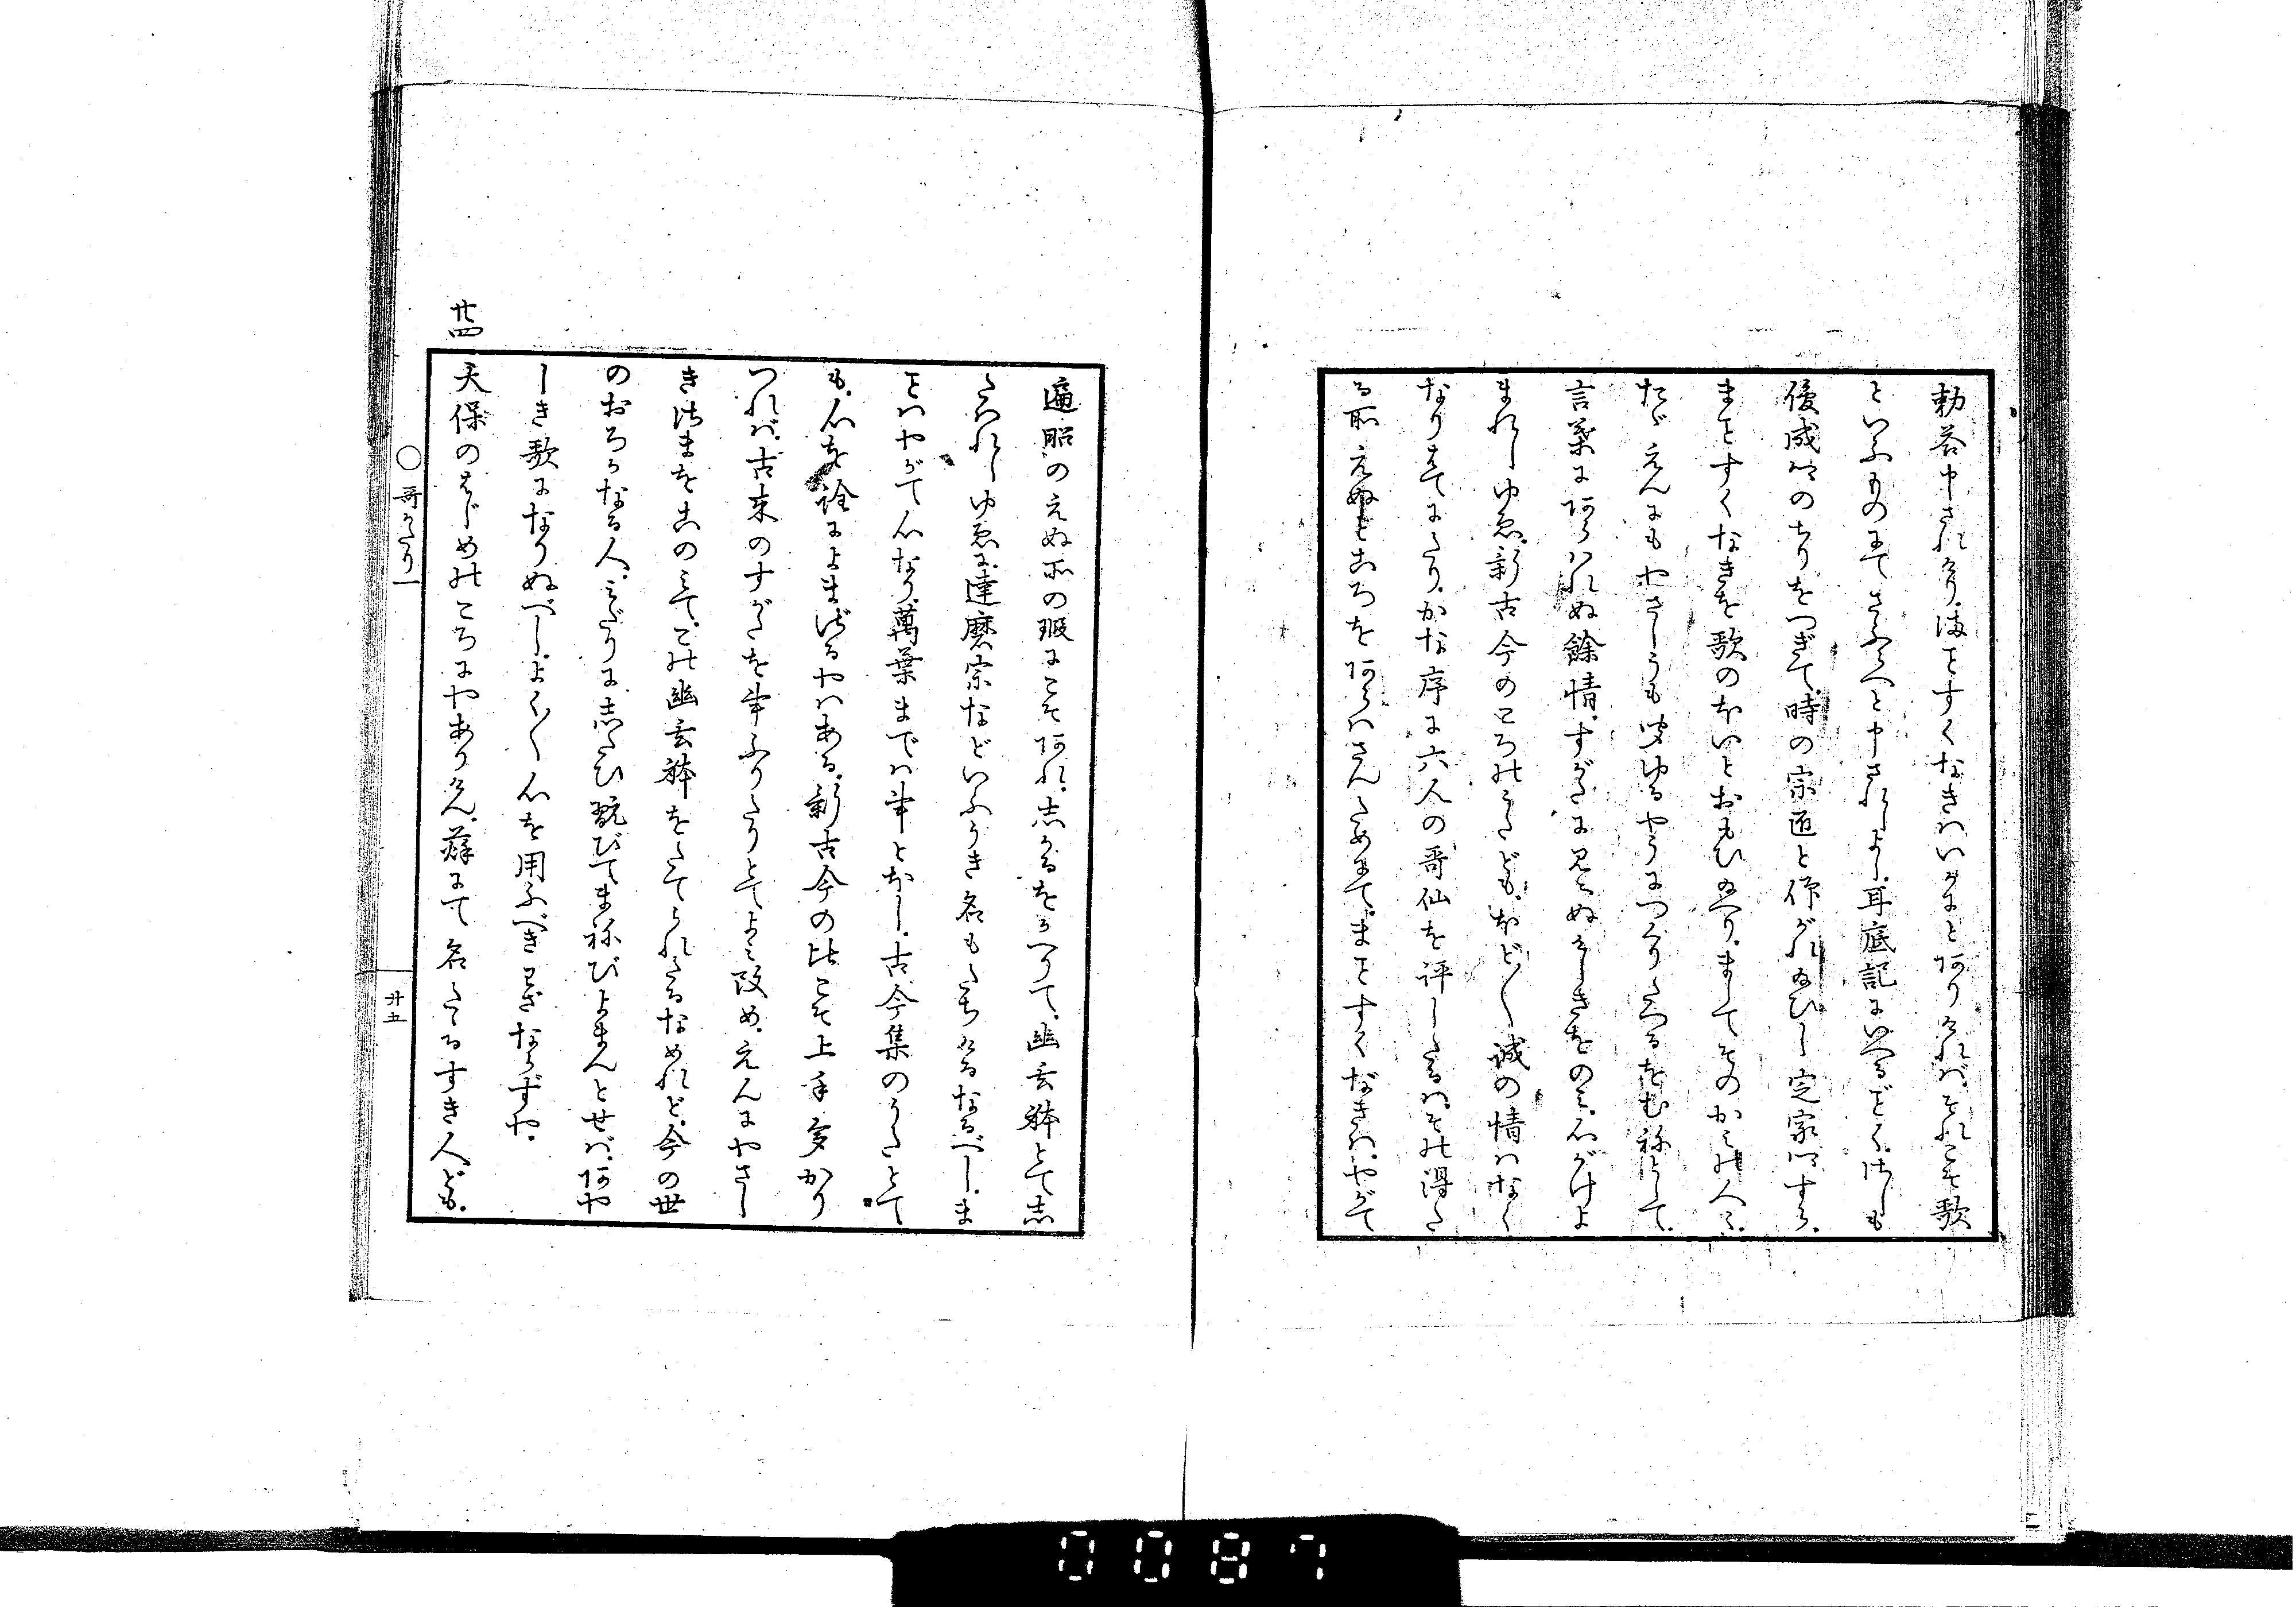 勅答申されけり。まことすくなきはいかにとありければ。それこそ歌
といふものにてさふらへと申されしよし。耳底記にいへるごとく。はしも
俊成卿のちりをつぎて。時の宗匠と仰がれ給ひし定家卿すら。
まことすくなきを歌のほいとおもひ給へり。ましてそのかみの人々。
たゞえんにもやさしうも聞ゆるやうにつくりたつるをむねとして。
言葉にあらはれぬ餘情。すがたに見えぬけしきをのみ。心がけよ
まれしゆゑ。新古今のころのうたども。ほど〳〵誠の情はなく
なりはてにたり。かな序に六人の哥仙を評したるは。その得た
る所えぬところをあらはさんためにて。まことすくなきは。やがて
遍昭のえぬ所の瑕にこそあれ。志かるをかへりて。幽玄躰とて志
たはれしゆゑに。達磨宗などいふうき名もたちけるなるべし。ま
ことはやがて心なり。萬葉まではまことおほし。古今集のうたとて
も。心を詮によまざるやはある。新古今の比こそ上手多かり
つれば。古来のすがたを事ふりたりとてよみ改め。えんにやさし
きさまをこのみて。この幽玄躰をたてられたるなめれど。今の世
のおろかなる人。みだりに志たひ翫びてまねびよまんとせば。あや
しき歌になりぬべし。よく〳〵心を用ふべきわざならずや。
廿四
天保のはじめのころにやありけん。
名たゝるすき人ども。
○哥かたり一
廿五
0087